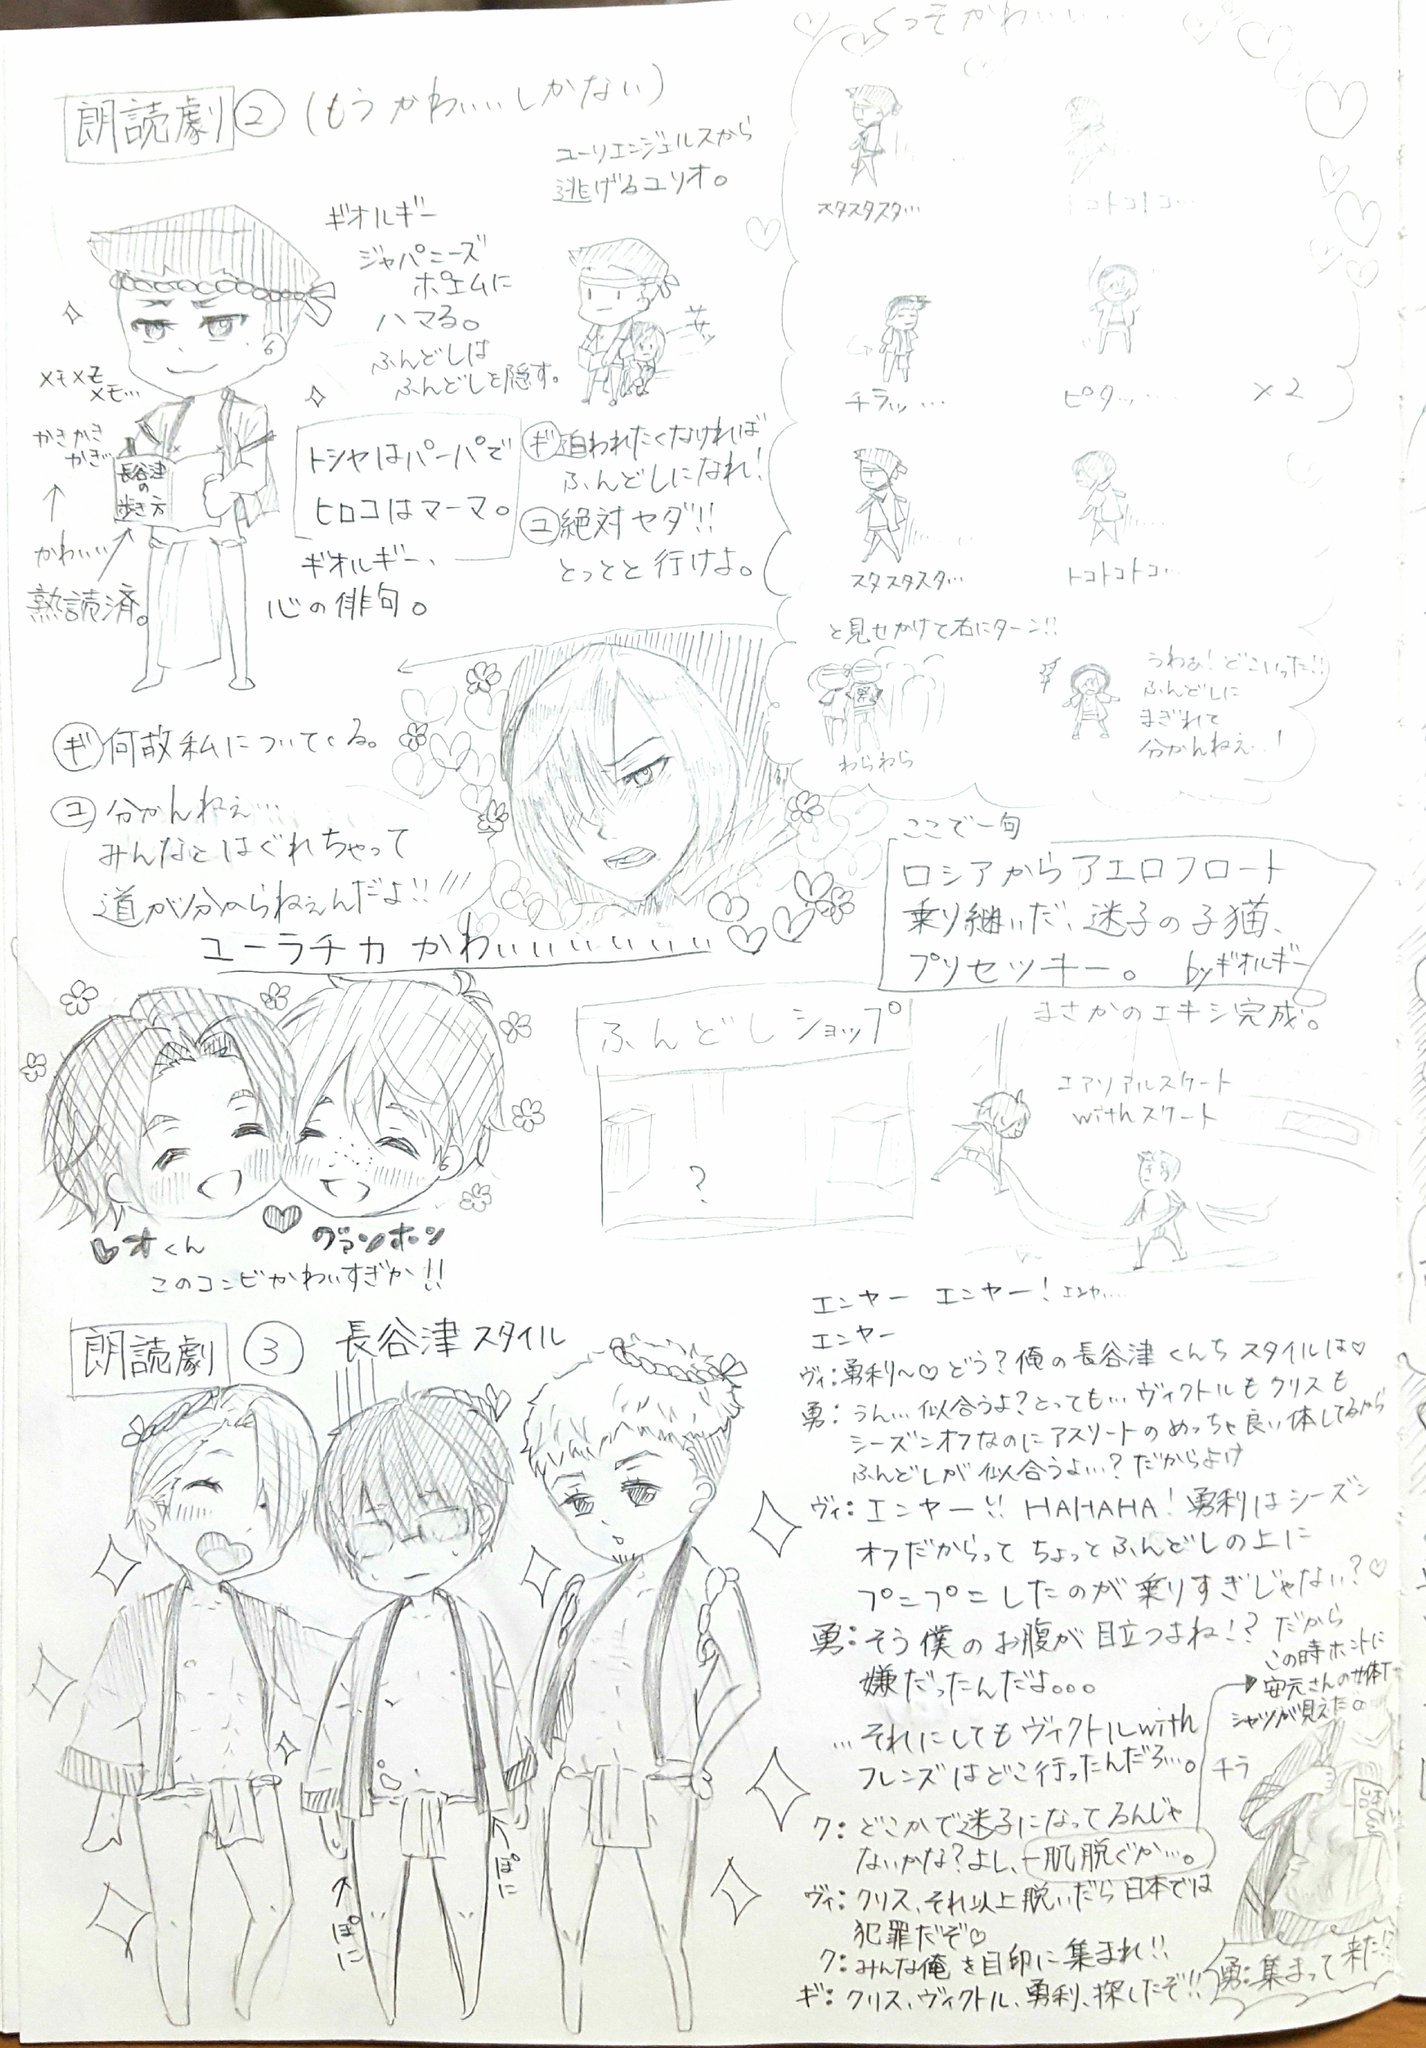 朗読劇② (もうかわいいしかない)
ギオルギー
ジャパニーズ
ポエムに
ハマる。
ふんどしは
ふんどしを隠す。
メモメモ
メモ…
かきかき
かき
長谷津
の
歩き方
かわいい
熟読済。
トシヤはパーパで
ヒロコはマーマ。
ギオルギー、
心の俳句。
ユーリエンジェルスから
逃げるユリオ。
サッ
ギ 追われたくなければ
ふんどしになれ!
ユ 絶対ヤダ!!
とっとと行けよ。
くっそかわいい…
スタスタスタ…
トコトコトコ…
チラッ…
ピタッ…
×2
スタスタスタ…
トコトコトコ…
と見せかけて右にターン!!
わらわら
うわぁ!どこいった!!
ふんどしに
まぎれて
分かんねぇ…!
ギ 何故私についてくる。
ユ 分かんねぇ…
みんなとはぐれちゃって
道が分からねぇんだよ!!
ユーラチカかわいいいいいいい
ここで一句
ロシアからアエロフロート
乗り継いだ、迷子の子猫、
プリセツキー。 byギオルギー
まさかのエキシ完成。
オくん
グァンホン
このコンビかわいすぎか!!
ふんどしショップ
?
エアリアルスケート
withスケート
朗読劇 ③ 長谷津スタイル
ぽに
ぽに
エンヤー エンヤー! エンヤ…
エンヤー
ヴィ:勇利～♡どう?俺の長谷津くんちスタイルは♡
勇:うん…似合うよ?とっても…ヴィクトルもクリスも
シーズンオフなのにアスリートのめっちゃ良い体してるから
ふんどしが似合うよ…?だからよけ
ヴィ:エンヤー!! HAHAHA!勇利はシーズン
オフだからってちょっとふんどしの上に
プニプニしたのが乗りすぎじゃない?♡
勇:そう僕のお腹が目立つよね!?だから
嫌だったんだよ。。。
…それにしてもヴィクトルwith
フレンズはどこ行ったんだろ…。
この時ホントに
安元さんの女体T
シャツが見えた。
チラ
ク:どこかで迷子になってるんじゃ
ないかな?よし、一肌脱ぐか…。
ヴィ:クリス、それ以上脱いだら日本では
犯罪だぞ♡
ク:みんな俺を目印に集まれ!!
ギ:クリス、ヴィクトル、勇利、探したぞ!!
勇:集まって来た!?